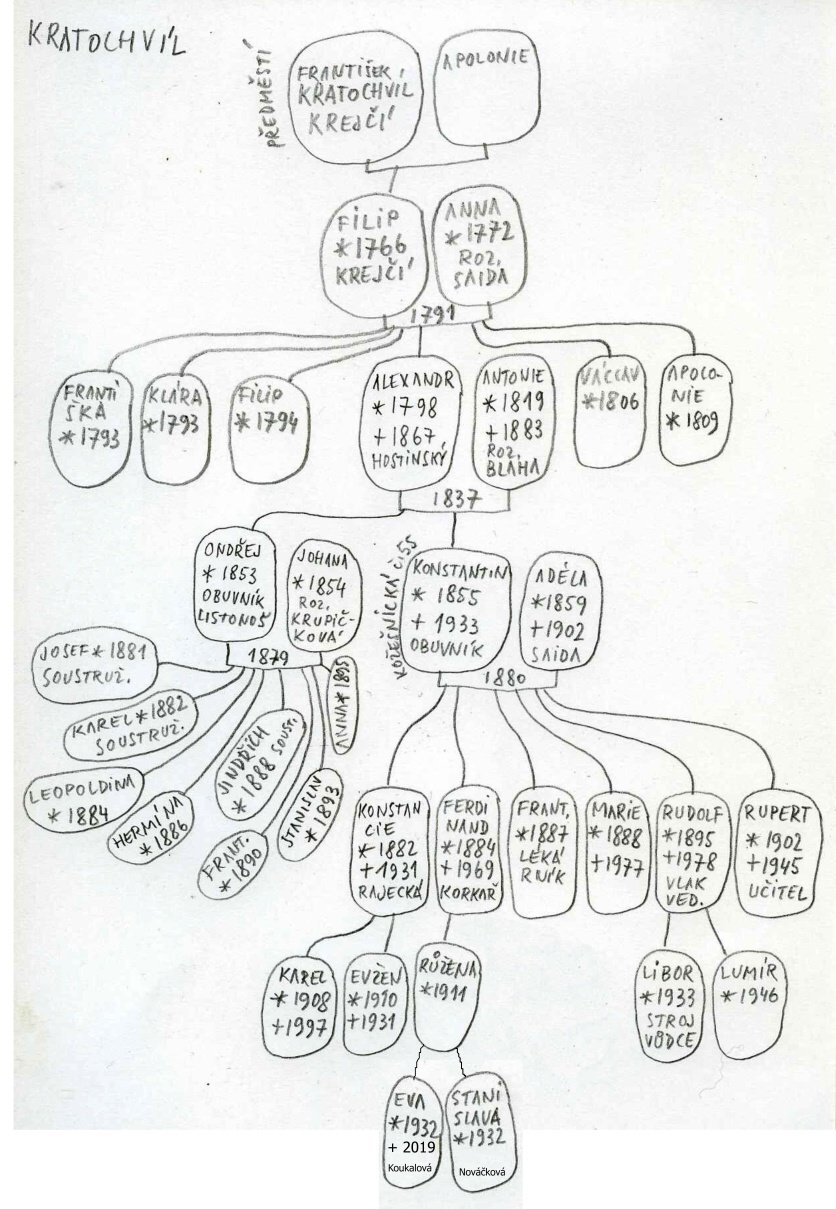 KRATOCHVÍL
PŘEDMĚSTÍ
FRANTIŠEK
KRATOCHVIL
KREJČÍ
APOLONIE
FILIP
*1766
KREJČÍ
ANNA
*1772
ROZ.
SAIDA
1791
FRANTI
ŠKA
*1793
KLÁRA
*1793
FILIP
*1794
ALEXANDR
*1798
+1867
HOSTINSKÝ
ANTONIE
*1819
+1883
ROZ.
BLAHA
VÁCLAV
*1806
APOLO-
NIE
*1809
1837
ONDŘEJ
*1853
OBUVNÍK
LISTONOŠ
JOHANA
*1854
ROZ.
KRUPIČ-
KOVÁ
KOŽEŠNICKÁ č.55
KONSTANTIN
*1855
+1933
OBUVNÍK
ADÉLA
*1859
+1902
SAIDA
1879
1880
JOSEF *1881
SOUSTRUŽ.
KAREL *1882
SOUSTRUŽ.
LEOPOLDINA
*1884
HERMÍNA
*1886
JINDŘICH
*1888 SOUST.
FRANT.
*1890
STANISLAV
*1893
ANNA *1895
KONSTAN
CIE
*1882
+1931
RAJECKÁ
FERDI
NAND
*1884
+1969
KORKAŘ
FRANT.
*1887
LÉKÁ
RNÍK
MARIE
*1888
+1977
RUDOLF
*1895
+1978
VLAK
VED.
RUPERT
*1902
+1945
UČITEL
KAREL
*1908
+1997
EVŽEN
*1910
+1931
RŮŽENA
*1911
LIBOR
*1933
STROJ
VŮDCE
LUMÍR
*1946
EVA
*1932
+ 2019
Koukalová
STANI
SLAVA
*1932
Nováčková